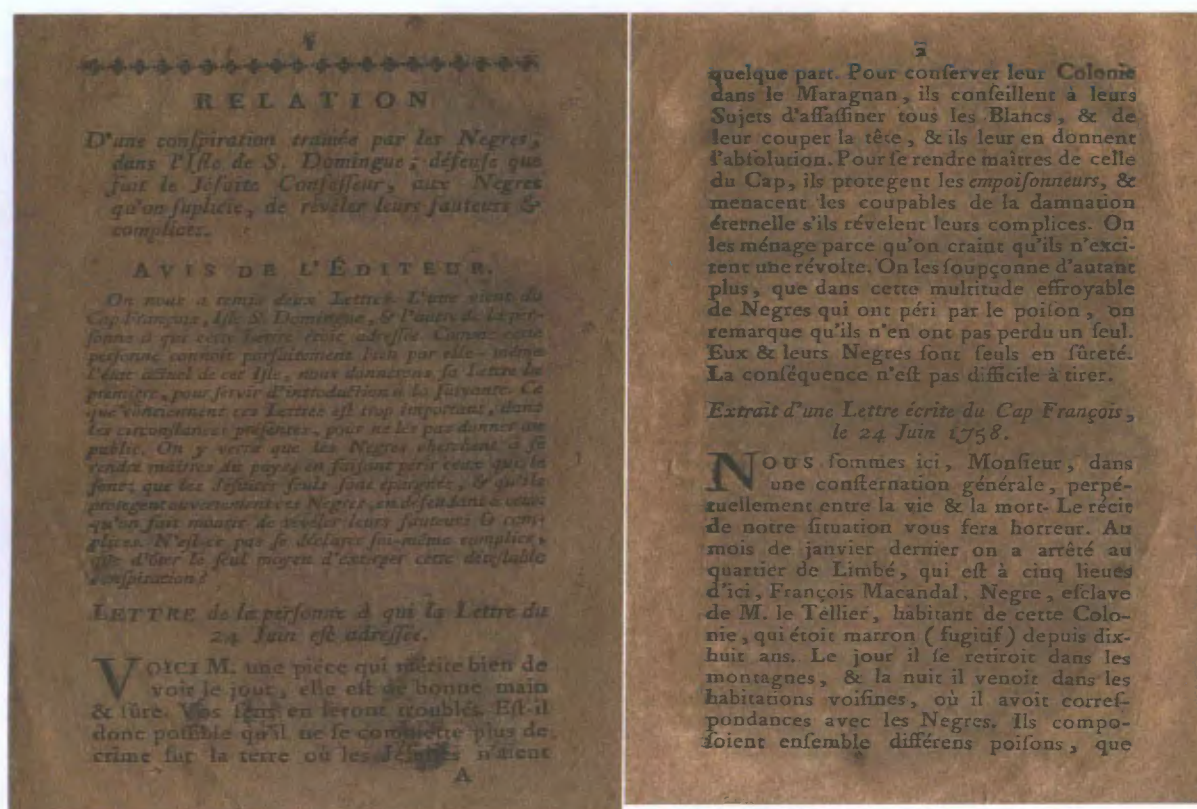 RELATION
D'une conſpiration tramée par les Negres,
dans l'Iſle de S. Domingue; défenſe que
fait le Jéſuite Confeſſeur, aux Negres
qu'on ſuplicie, de révéler leurs fauteurs &
complices.
AVIS DE L'ÉDITEUR.
On nous a remis deux Lettres. L'une vient du
Cap François, Iſle S. Domingue, & l'autre de la per-
ſonne à qui cette Lettre étoit adreſſée. Comme cette
perſonne connoît parfaitement bien par elle-même
l'état actuel de cet Iſle, nous donnerons ſa Lettre la
premiere, pour ſervir d'introduction à la ſuivante. Ce
que contiennent ces Lettres eſt trop important, dans
les circonſtances préſentes, pour ne les pas donner au
public. On y verra que les Negres cherchent à ſe
rendre maîtres du payes en faiſant périr ceux qui le
ſont; que les Jéſuites ſeuls ſont épargnés, & qu'ils
protegent ouvertement ces Negres, en défendant à ceux
qu'on fait mourir de révéler leurs fauteurs & com-
plices. N'eſt-ce pas ſe déclarer ſoi-même complice,
que d'ôter le ſeul moyen d'extirper cette déteſtable
conſpiration?
LETTRE de la perſonne à qui la Lettre du
24 Juin eſt adreſſée.
VOICI M. une piéce qui mérite bien de
voir le jour, elle eſt de bonne main
& ſûre. Vos ſens en ſeront troublés. Eſt-il
donc poſſible qu'il ne ſe commette plus de
crime ſur la terre où les Jéſuites n'aient
A
2
quelque part. Pour conſerver leur Colonie
dans le Maragnan, ils conſeillent à leurs
Sujets d'aſſaſſiner tous les Blancs, & de
leur couper la tête, & ils leur en donnent
l'abſolution. Pour ſe rendre maîtres de celle
du Cap, ils protegent les empoiſonneurs, &
menacent les coupables de la damnation
éternelle s'ils révelent leurs complices. On
les ménage parce qu'on craint qu'ils n'exci-
tent une révolte. On les ſoupçonne d'autant
plus, que dans cette multitude effroyable
de Negres qui ont péri par le poiſon, on
remarque qu'ils n'en ont pas perdu un ſeul.
Eux & leurs Negres ſont ſeuls en ſûreté.
La conſéquence n'eſt pas difficile à tirer.
Extrait d'une Lettre écrite du Cap François,
le 24 Juin 1758.
NOUS ſommes ici, Monſieur, dans
une conſternation générale, perpé-
tuellement entre la vie & la mort- Le récit
de notre ſituation vous fera horreur. Au
mois de janvier dernier on a arrêté au
quartier de Limbé, qui eſt à cinq lieues
d'ici, François Macandal, Negre, eſclave
de M. le Tellier, habitant de cette Colo-
nie, qui étoit marron (fugitif) depuis dix-
huit ans. Le jour il ſe retiroit dans les
montagnes, & la nuit il venoit dans les
habitations voiſines, où il avoit correſ-
pondances avec les Negres. Ils compo-
ſoient enſemble différens poiſons, que